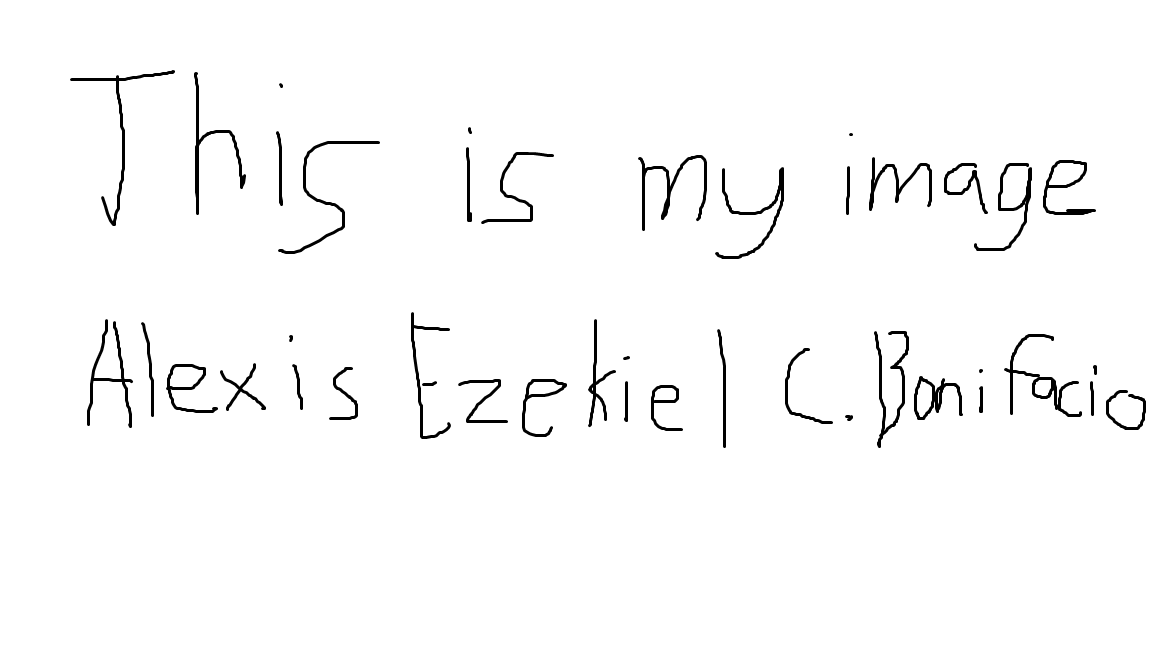 This is my image
Alexis Ezekiel C. Bonifacio